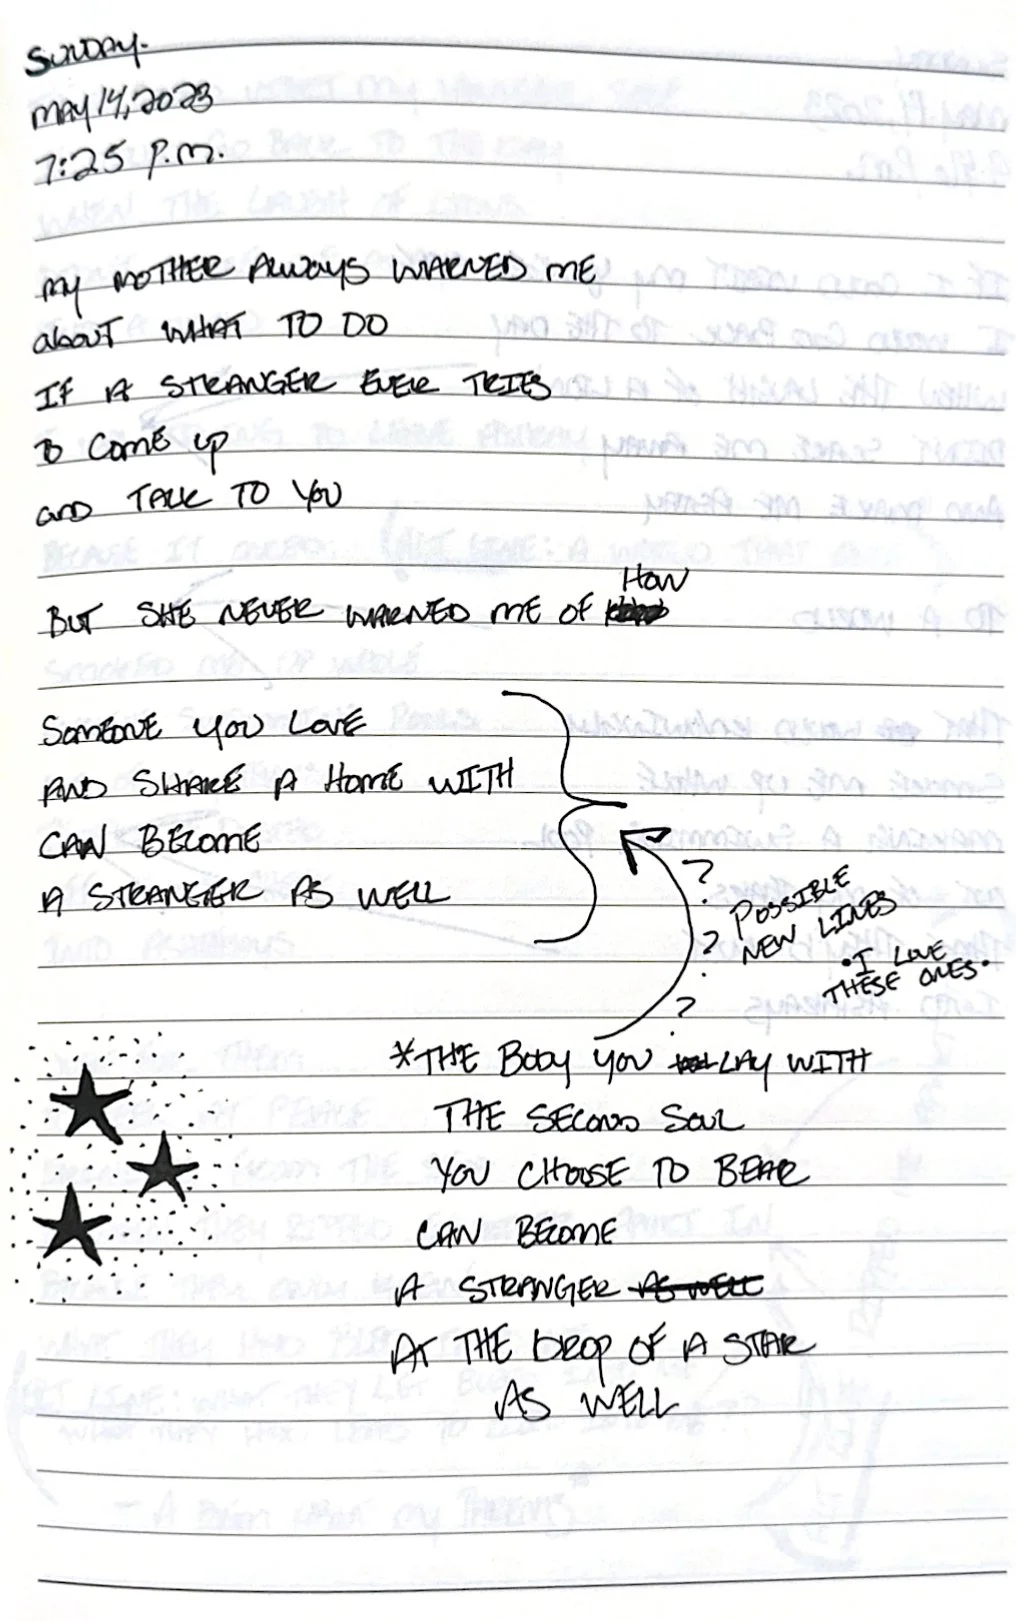 SUNDAY.
MAY 14, 2023
7:25 P.M.
MY MOTHER ALWAYS WARNED ME
ABOUT WHAT TO DO
IF A STRANGER EVER TRIES
TO COME UP
AND TALK TO YOU
HOW
BUT SHE NEVER WARNED ME OF
SOMEONE YOU LOVE
AND SHARE A HOME WITH
CAN BECOME
A STRANGER AS WELL
?
?
?
POSSIBLE
NEW LINES
• I LOVE
THESE ONES •
*THE BODY YOU LAY WITH
THE SECOND SOUL
YOU CHOOSE TO BEAR
CAN BECOME
A STRANGER AS WELL
AT THE DROP OF A STAR
AS WELL